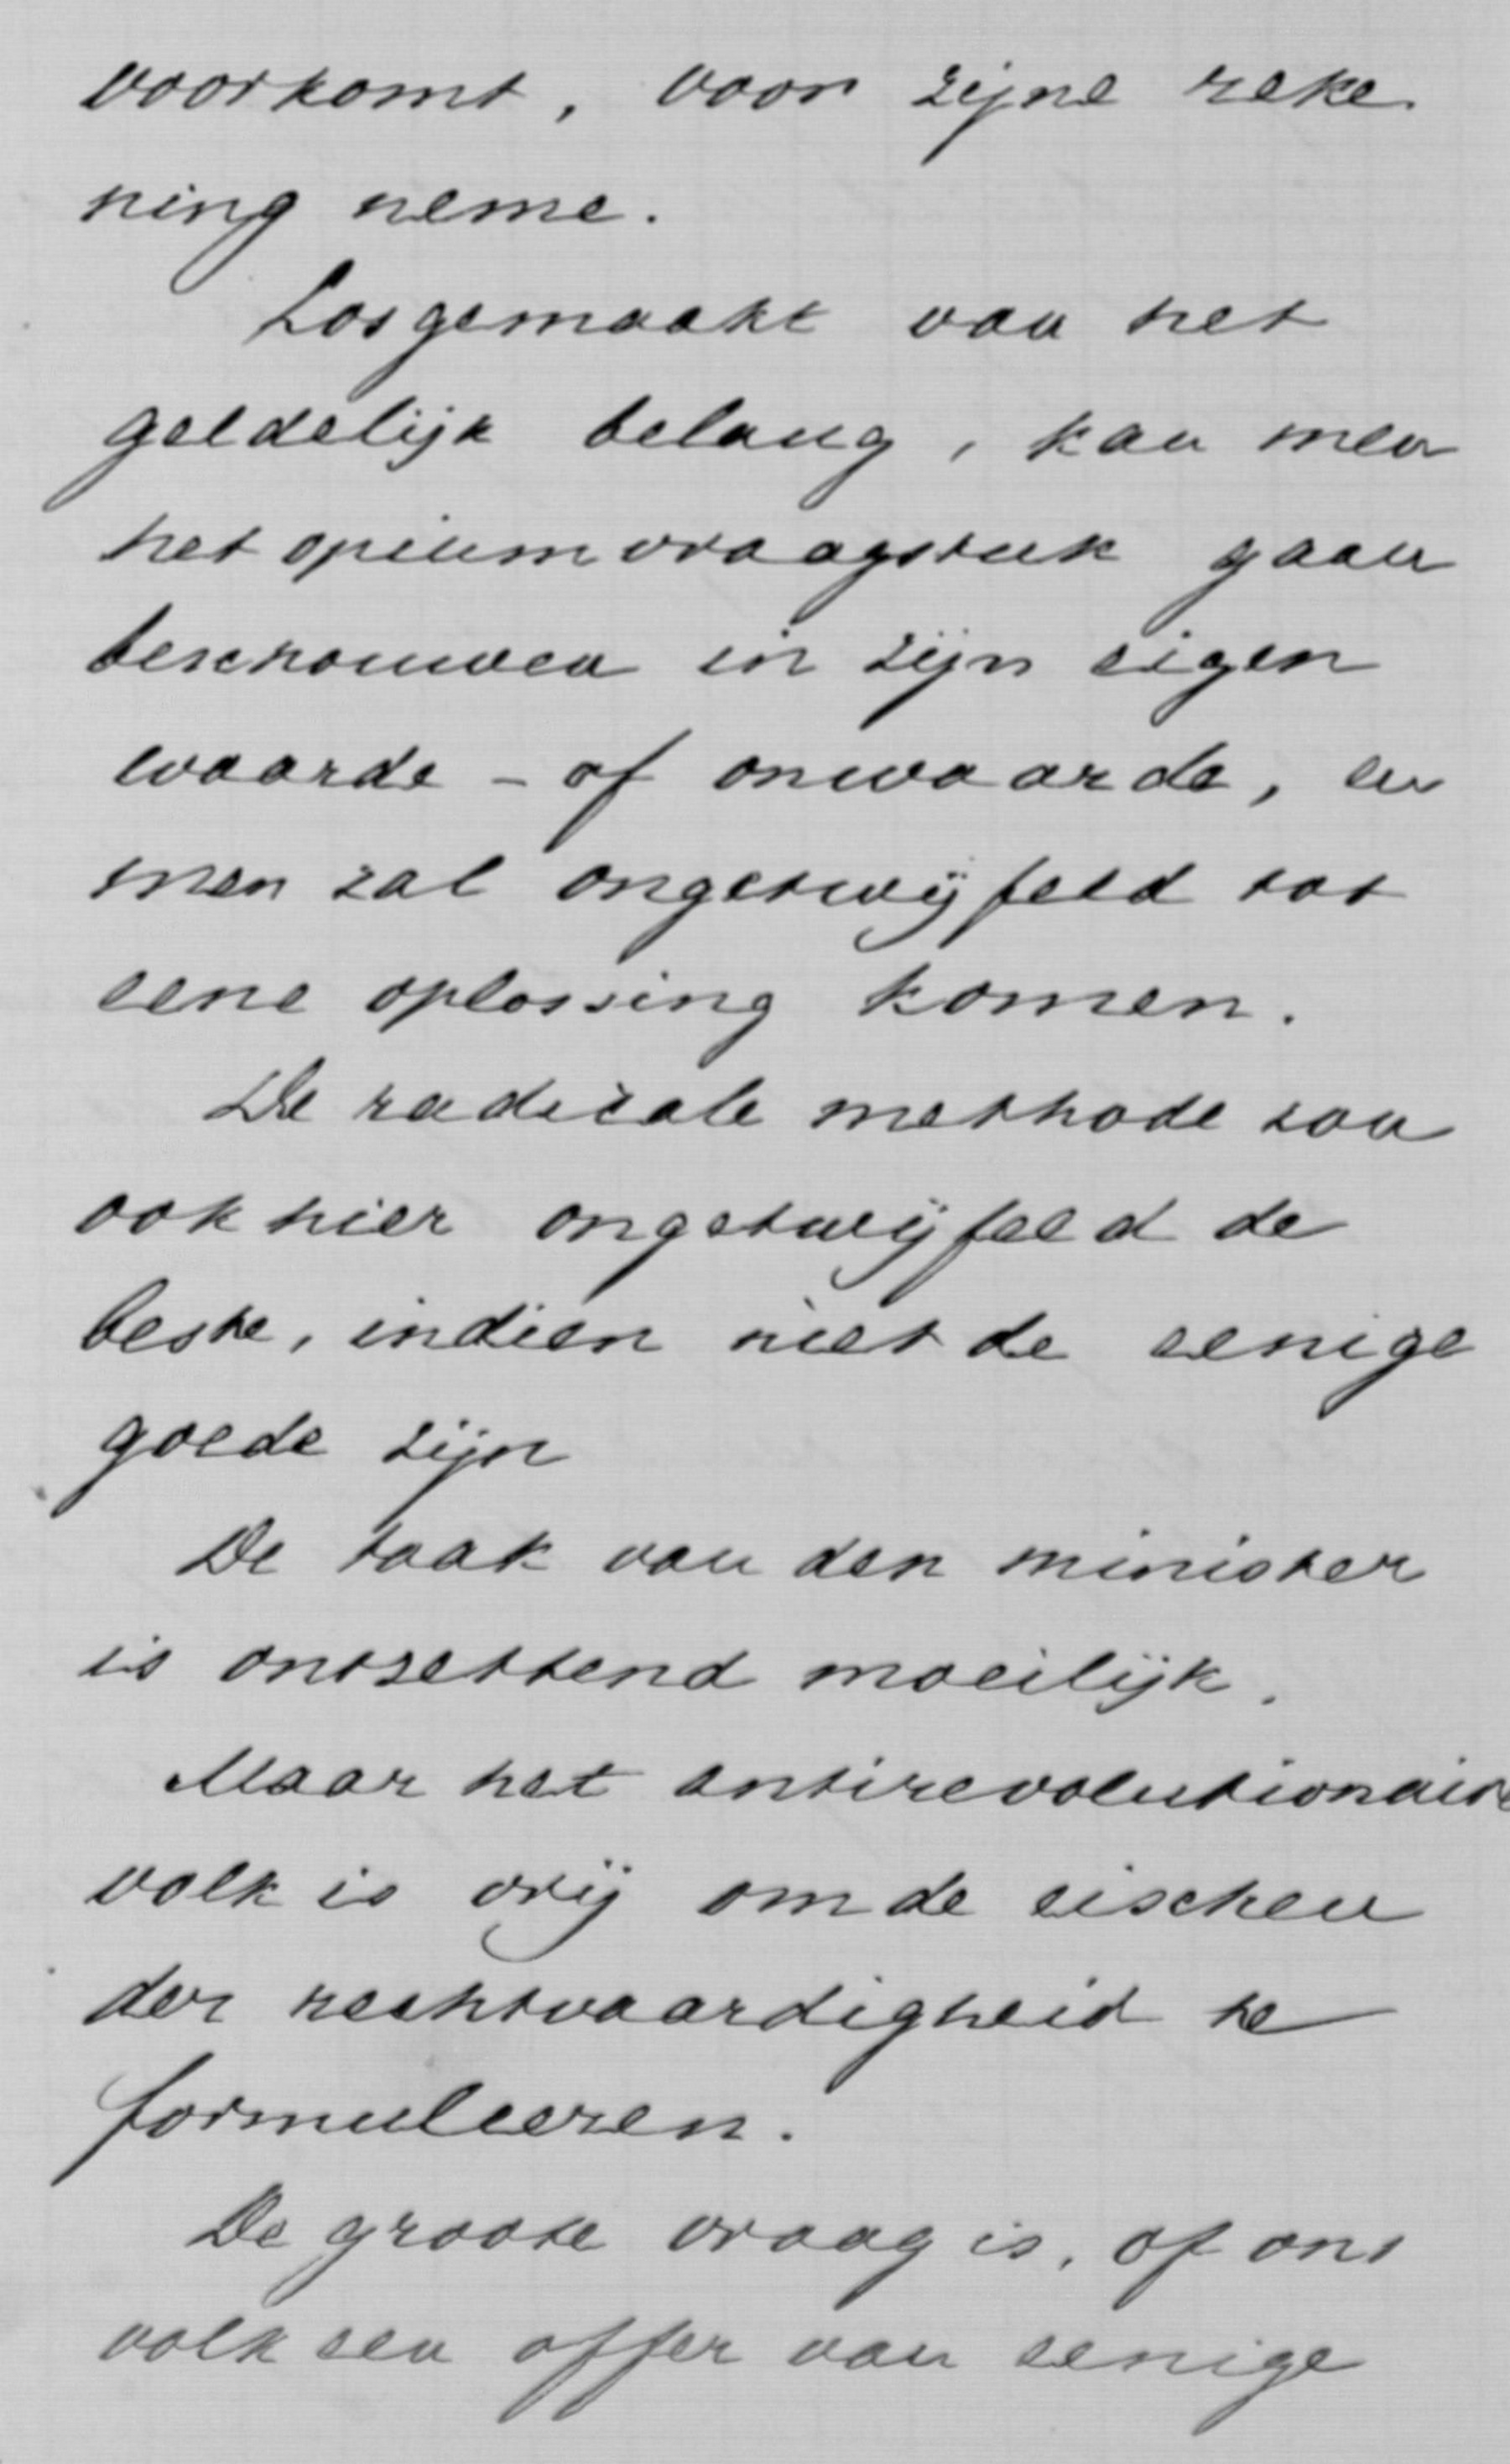 voorkomt, voor zijne reke-
ning neme.
Losgemaakt van het
geldelijk belang, kan men
het opiumvraagstuk gaan
beschouwen in zijn eigen
waarde - of onwaarde, en
men zal ongetwijfeld tot
eene oplossing komen.
De radicale methode zou
ook hier ongetwijfeld de
beste, indien niet de eenige
goede zijn
De taak van den minister
is ontzettend moeilijk.
Maar het antirevolutionaire
volk is vrij om de eischen
der rechtvaardigheid te
formuleeren.
De groote vraag is, of ons
volk een offer van eenige